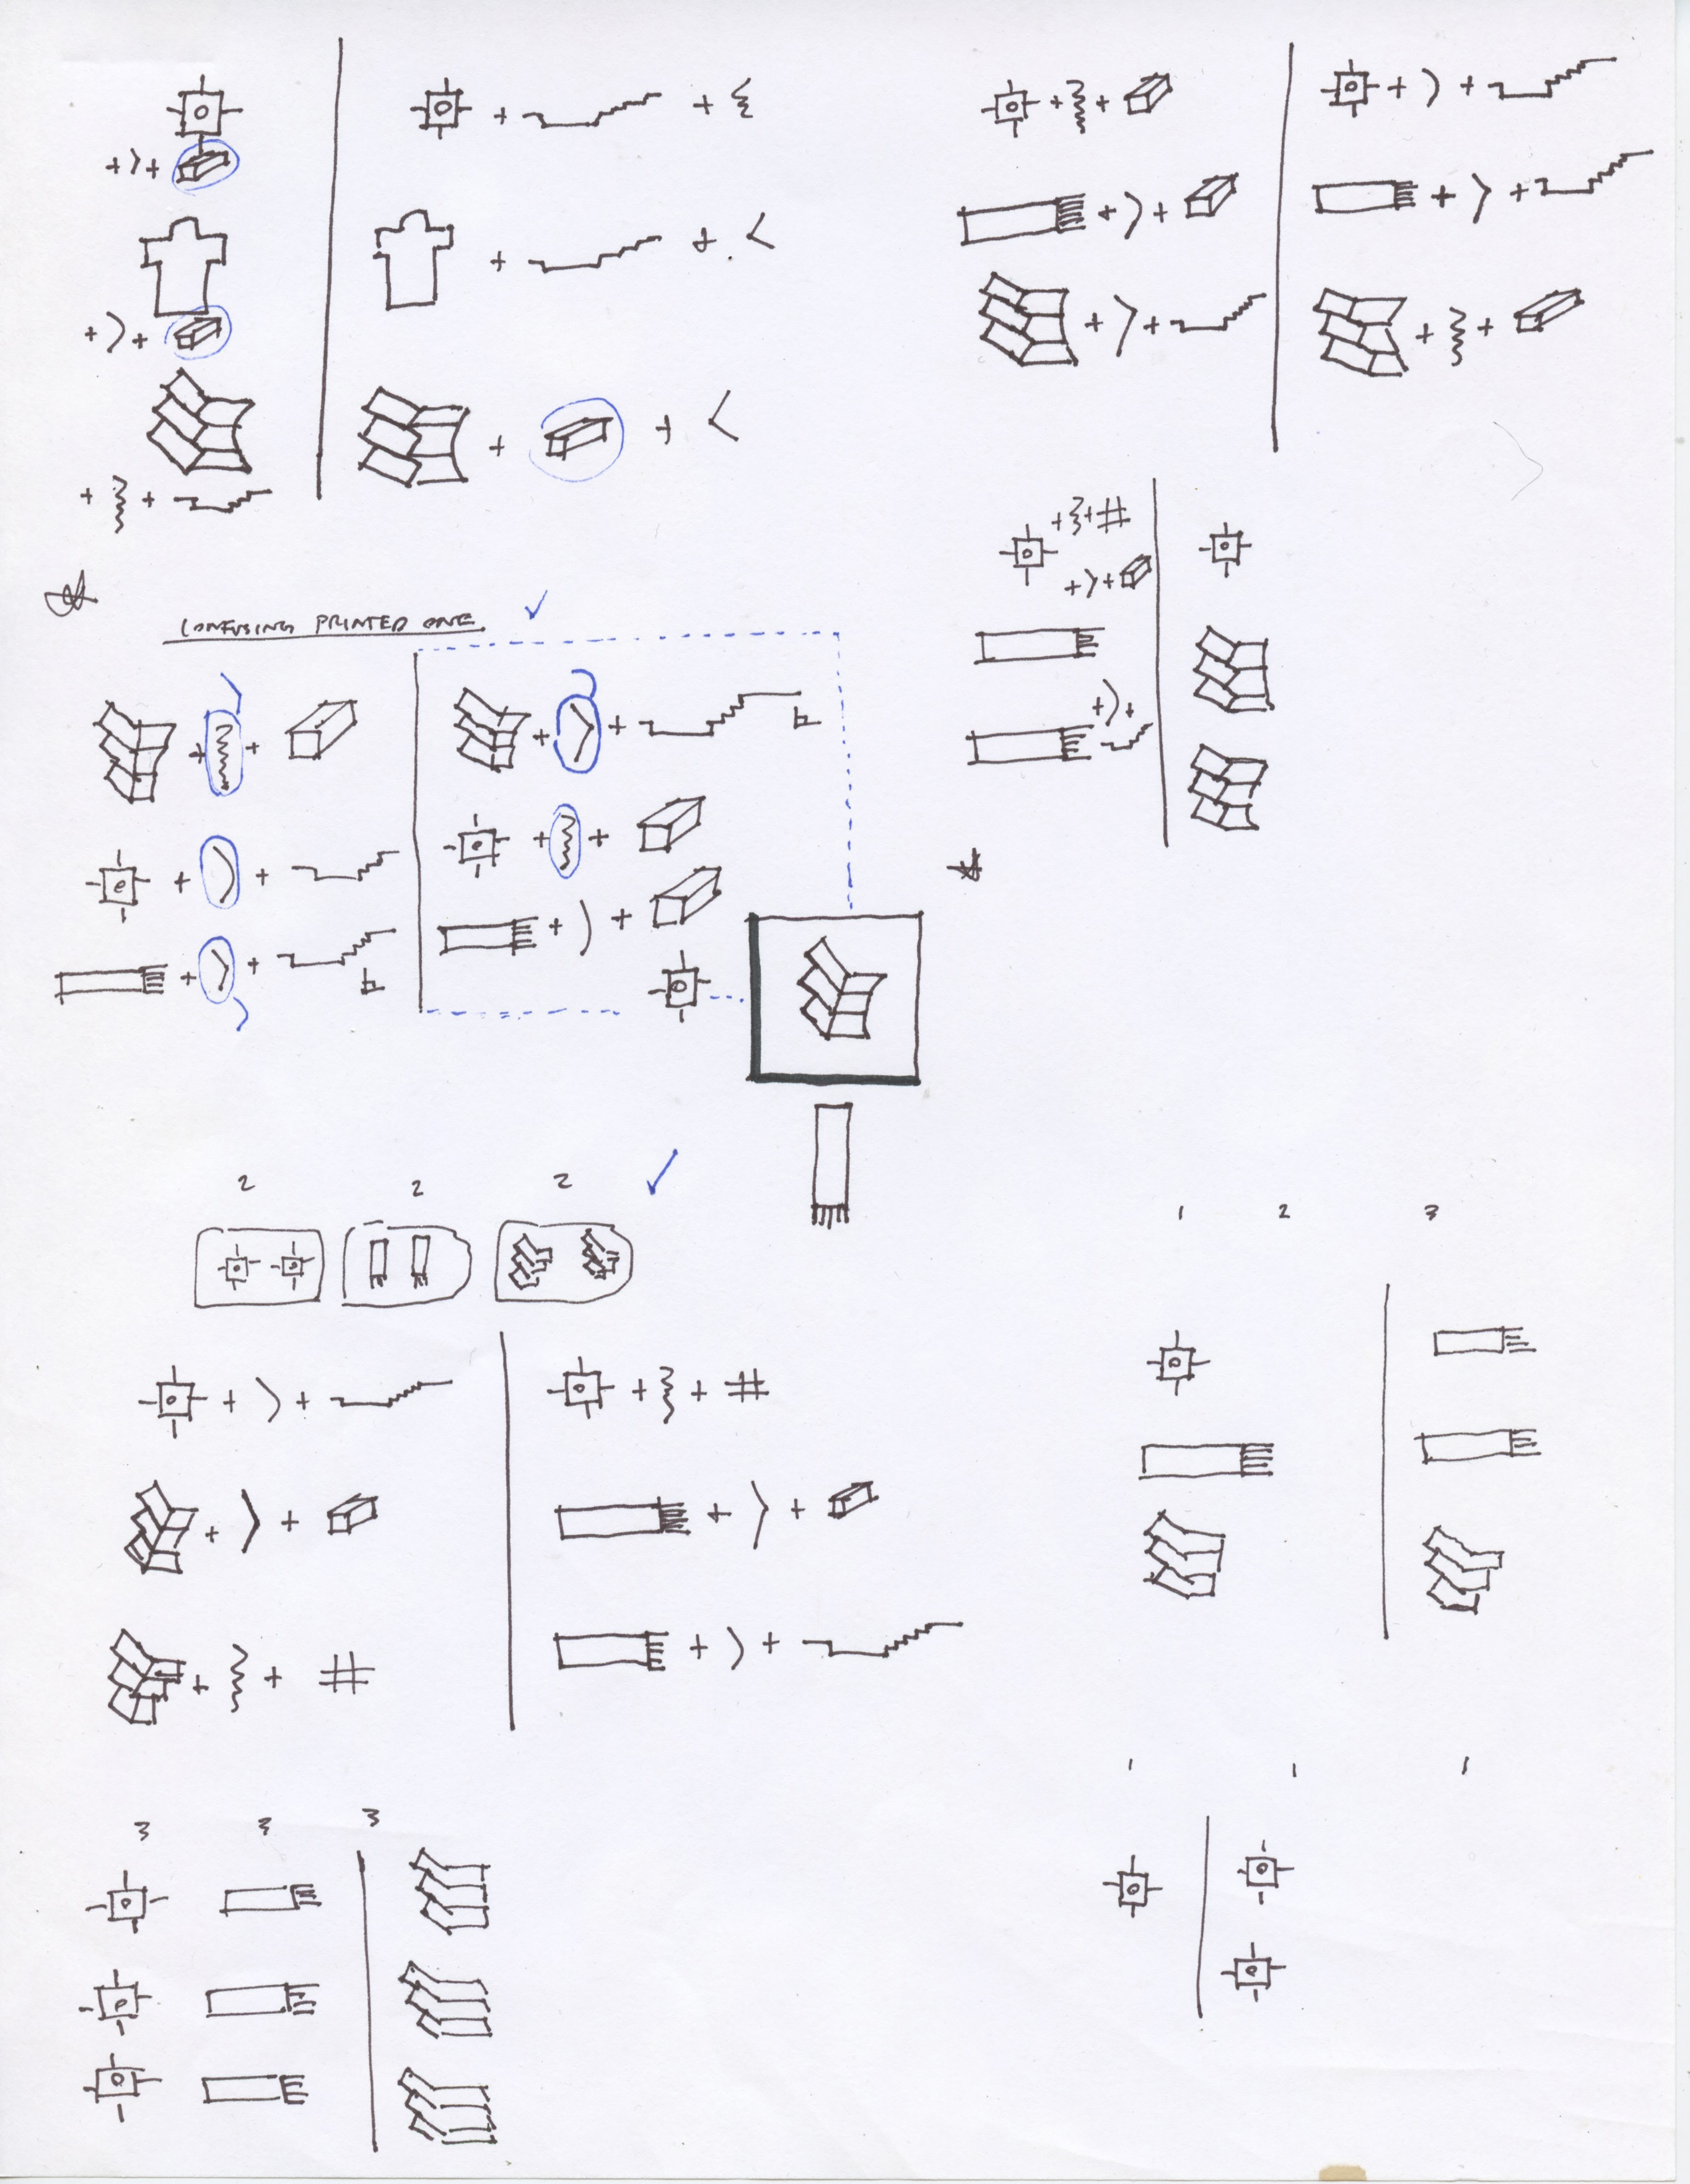 CONFUSING PRINTED ONE
2 2 2
1 2 3
3 3 3
1 1 1